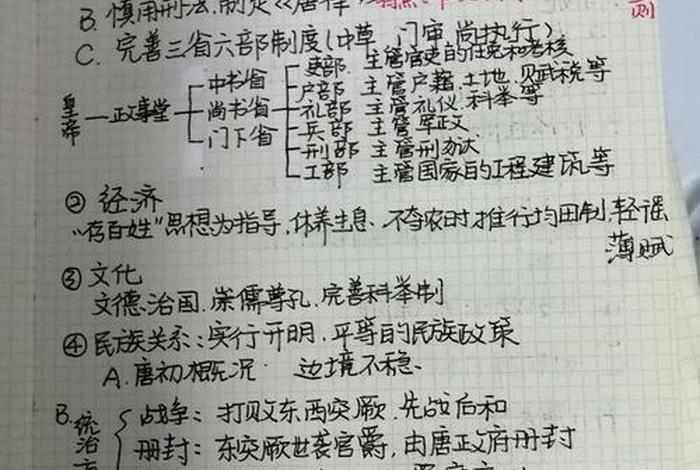 B. 慎用刑法,制定《唐律》,
则
C. 完善三省六部制度(中草 门审 尚执行)
皇帝 — 政事堂
中书省
尚书省
门下省
吏部 主管官吏的任免和考核
户部 主管户籍.土地.贝武税等
礼部 主管礼仪.科举等
兵部 主管军政.
刑部 主管刑办法
工部 主管国家的工程建筑等
② 经济
“存百姓”思想为指导,休养生息、不夺农时,推行均田制,轻徭
薄赋
③ 文化
文德治国.崇儒尊孔.完善科举制
④ 民族关系:实行开明.平等的民族政策
A.唐初概况 边境不稳.
B.统治方
战争:打败东西突厥.先战后和
册封:东突厥世袭官爵,由唐政府册封